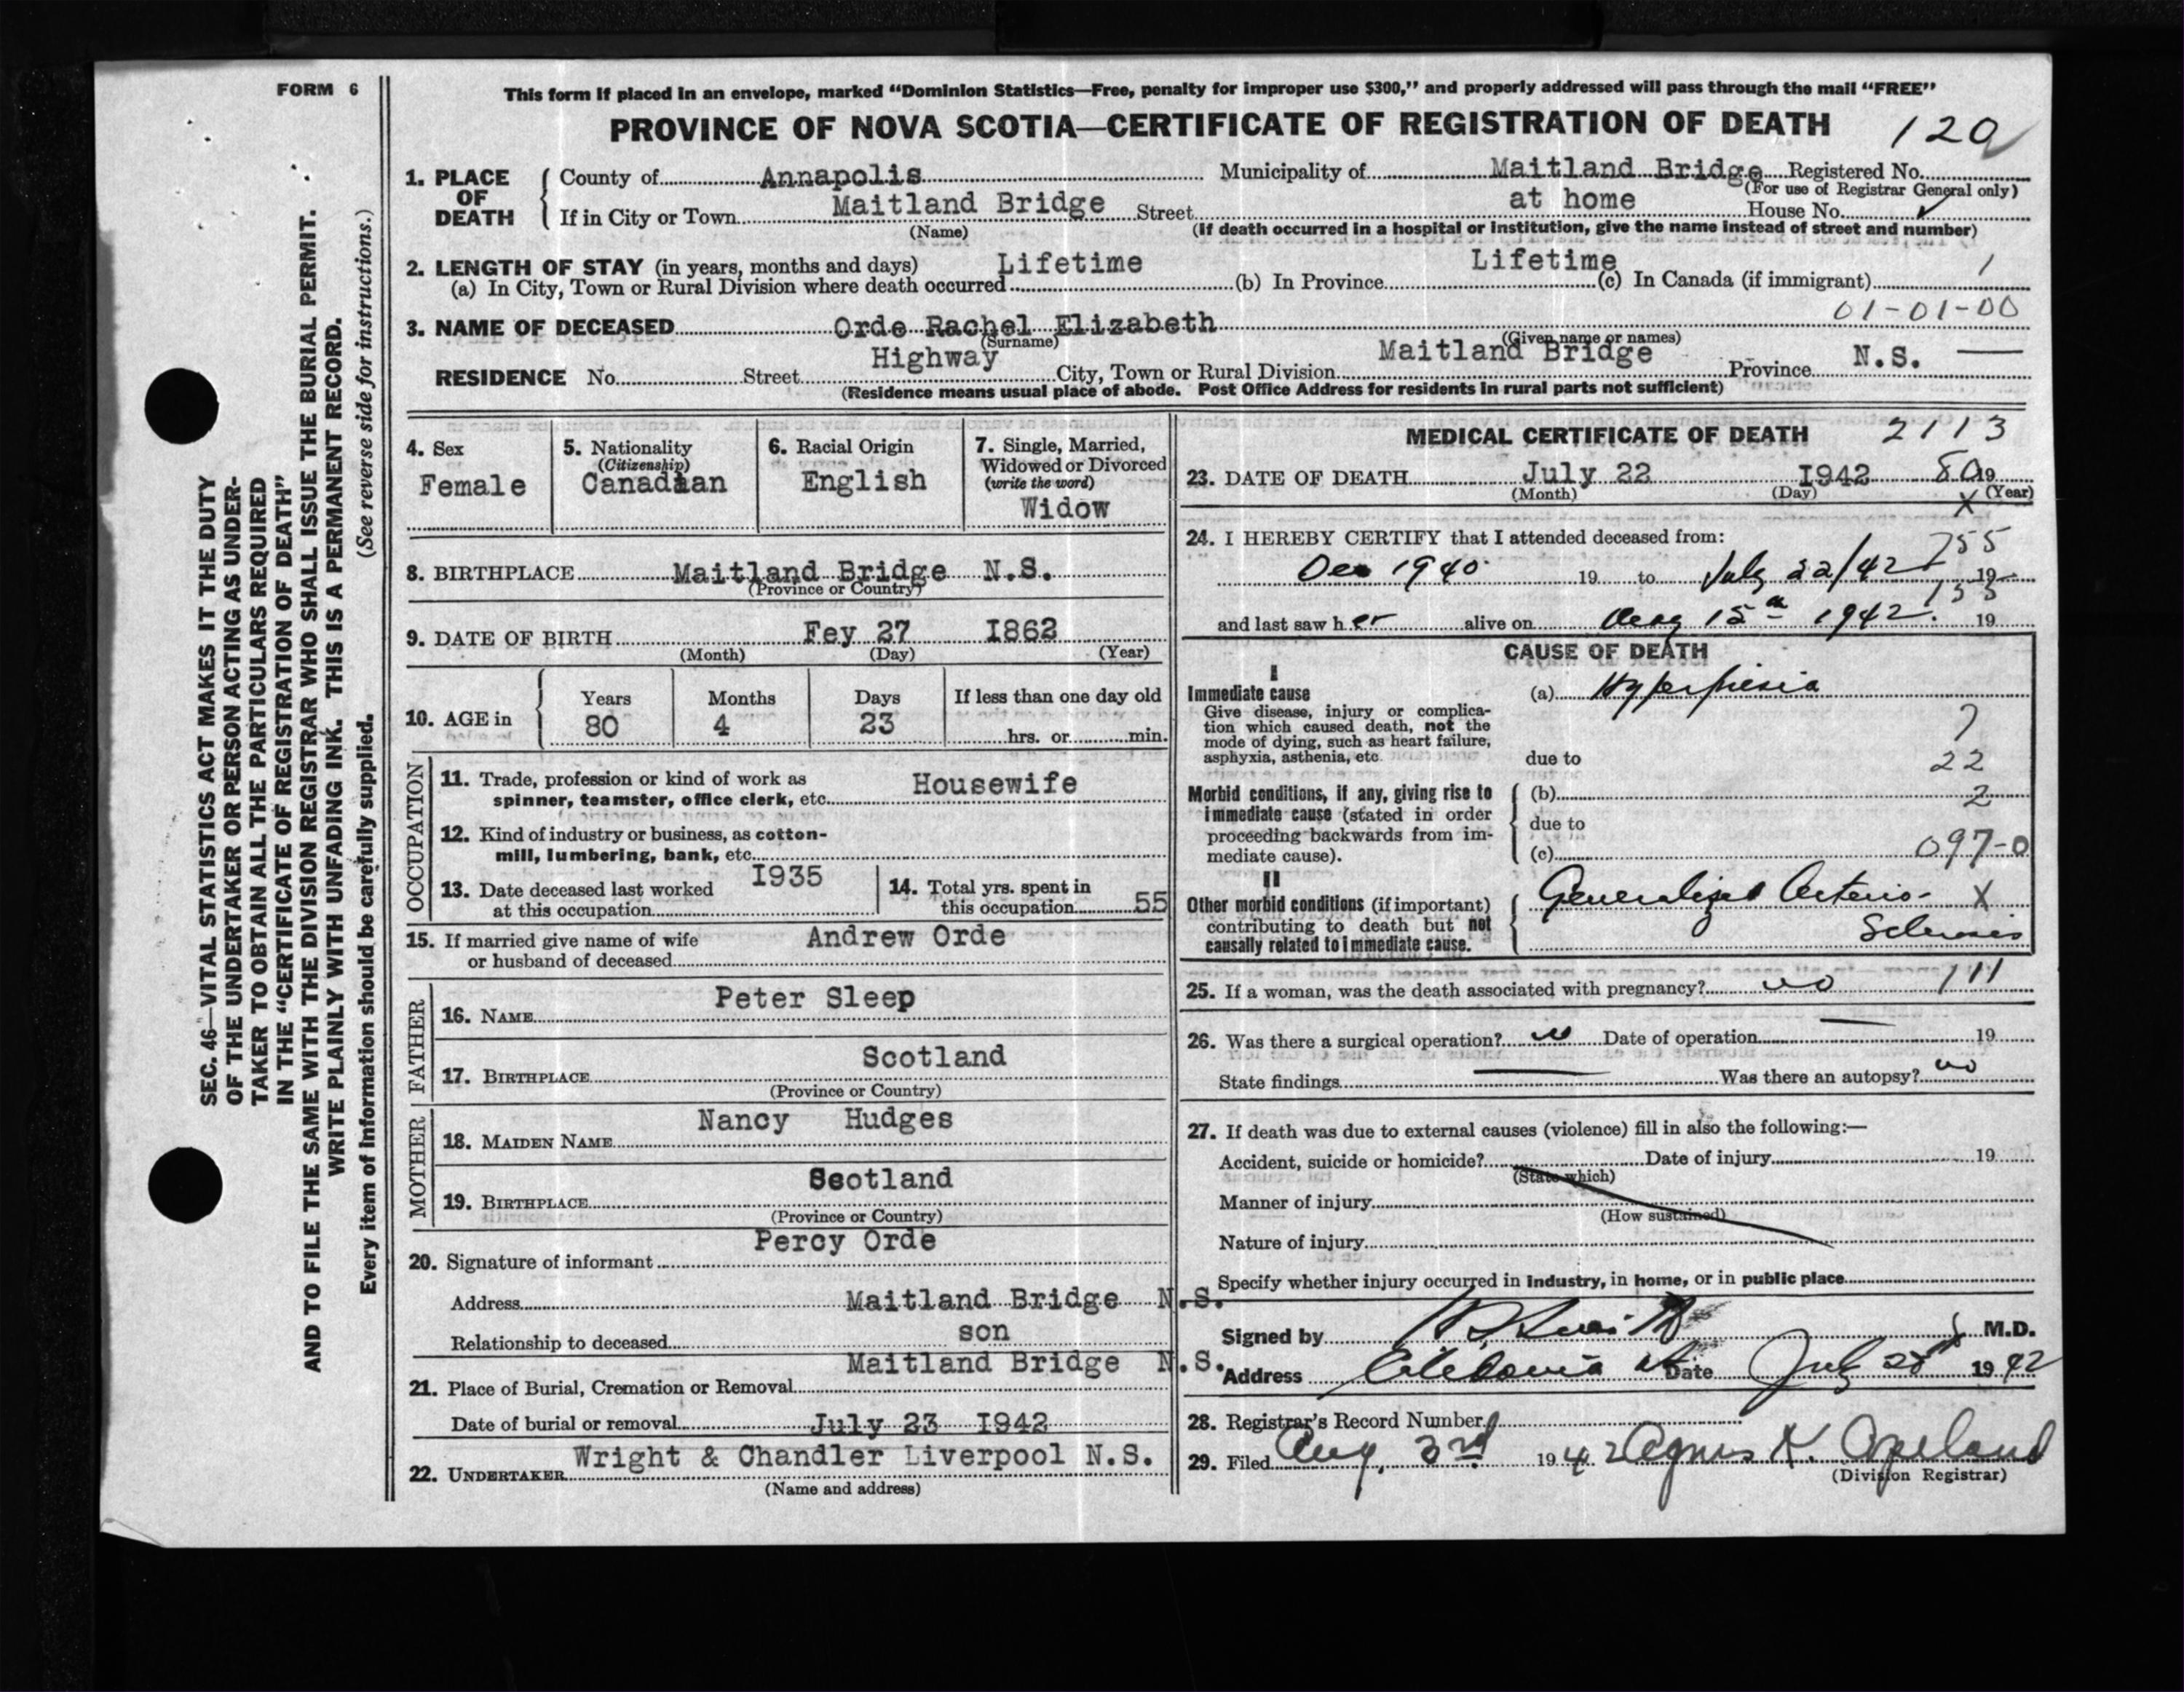 FORM 6
This form if placed in an envelope, marked “Dominion Statistics—Free, penalty for improper use $300,” and properly addressed will pass through the mail “FREE”
PROVINCE OF NOVA SCOTIA—CERTIFICATE OF REGISTRATION OF DEATH 120
SEC. 46—VITAL STATISTICS ACT MAKES IT THE DUTY
OF THE UNDERTAKER OR PERSON ACTING AS UNDER-
TAKER TO OBTAIN ALL THE PARTICULARS REQUIRED
IN THE “CERTIFICATE OF REGISTRATION OF DEATH”
AND TO FILE THE SAME WITH THE DIVISION REGISTRAR WHO SHALL ISSUE THE BURIAL PERMIT.
WRITE PLAINLY WITH UNFADING INK. THIS IS A PERMANENT RECORD.
Every item of information should be carefully supplied. (See reverse side for instructions.)
1. PLACE OF DEATH
County of Annapolis Municipality of Maitland Bridge Registered No.
(For use of Registrar General only)
If in City or Town Maitland Bridge Street at home House No.
(Name) (If death occurred in a hospital or institution, give the name instead of street and number)
2. LENGTH OF STAY (in years, months and days)
(a) In City, Town or Rural Division where death occurred Lifetime (b) In Province Lifetime (c) In Canada (if immigrant) 1
01-01-00
3. NAME OF DECEASED Orde Rachel Elizabeth
(Surname) (Given name or names)
RESIDENCE No. Street Highway City, Town or Rural Division Maitland Bridge Province N.S.
(Residence means usual place of abode. Post Office Address for residents in rural parts not sufficient)
4. Sex
Female
5. Nationality
(Citizenship)
Canadian
6. Racial Origin
English
7. Single, Married,
Widowed or Divorced
(write the word)
Widow
8. BIRTHPLACE Maitland Bridge N.S.
(Province or Country)
9. DATE OF BIRTH Fey 27 I862
(Month) (Day) (Year)
10. AGE in
Years Months Days If less than one day old
80 4 23 hrs. or min.
OCCUPATION
11. Trade, profession or kind of work as
spinner, teamster, office clerk, etc. Housewife
12. Kind of industry or business, as cotton-
mill, lumbering, bank, etc.
13. Date deceased last worked
at this occupation I935
14. Total yrs. spent in
this occupation 55
15. If married give name of wife
or husband of deceased Andrew Orde
FATHER
16. NAME Peter Sleep
17. BIRTHPLACE Scotland
(Province or Country)
MOTHER
18. MAIDEN NAME Nancy Hudges
19. BIRTHPLACE Scotland
(Province or Country)
20. Signature of informant Percy Orde
Address Maitland Bridge N.S.
Relationship to deceased son
21. Place of Burial, Cremation or Removal Maitland Bridge N.S.
Date of burial or removal July 23 I942
22. UNDERTAKER Wright & Chandler Liverpool N.S.
(Name and address)
MEDICAL CERTIFICATE OF DEATH 2113
23. DATE OF DEATH July 22 I942 80 19
(Month) (Day) (Year)
X
24. I HEREBY CERTIFY that I attended deceased from:
1940 19 to July 22/42 19
and last saw her alive on 15th 1942. 19
CAUSE OF DEATH
I
Immediate cause
Give disease, injury or complica-
tion which caused death, not the
mode of dying, such as heart failure,
asphyxia, asthenia, etc.
(a) Hyperpiesia
7
due to
22
Morbid conditions, if any, giving rise to
immediate cause (stated in order
proceeding backwards from im-
mediate cause).
(b) 2
due to
(c) 097-0
II
Other morbid conditions (if important)
contributing to death but not
causally related to immediate cause.
Generalized Arterio- X
Sclerosis
25. If a woman, was the death associated with pregnancy? no 111
26. Was there a surgical operation? no Date of operation 19
State findings Was there an autopsy? no
27. If death was due to external causes (violence) fill in also the following:—
Accident, suicide or homicide? Date of injury 19
(State which)
Manner of injury
(How sustained)
Nature of injury
Specify whether injury occurred in industry, in home, or in public place
Signed by M.D.
Address Caledonia Date July 28 1942
28. Registrar's Record Number
29. Filed Aug. 3rd 1942 Agnes K. Copeland
(Division Registrar)